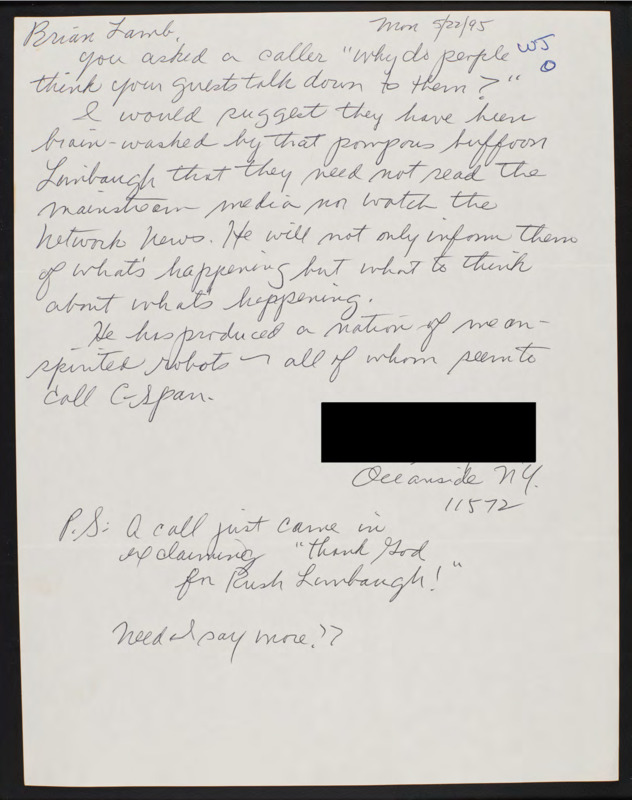 Mon 5/22/95
Brian Lamb,
WJ
O
you asked a caller "why do people
think your guests talk down to them?"
I would suggest they have been
brain-washed by that pompous buffoon
Limbaugh that they need not read the
mainstream media nor watch the
Network News. He will not only inform them
of what's happening but what to think
about what's happening.
He has produced a nation of mean-
spirited robots – all of whom seem to
call C-Span.
Oceanside NY.
11572
P.S: A call just came in
exclaiming "thank God
for Rush Limbaugh!"
Need I say more!??